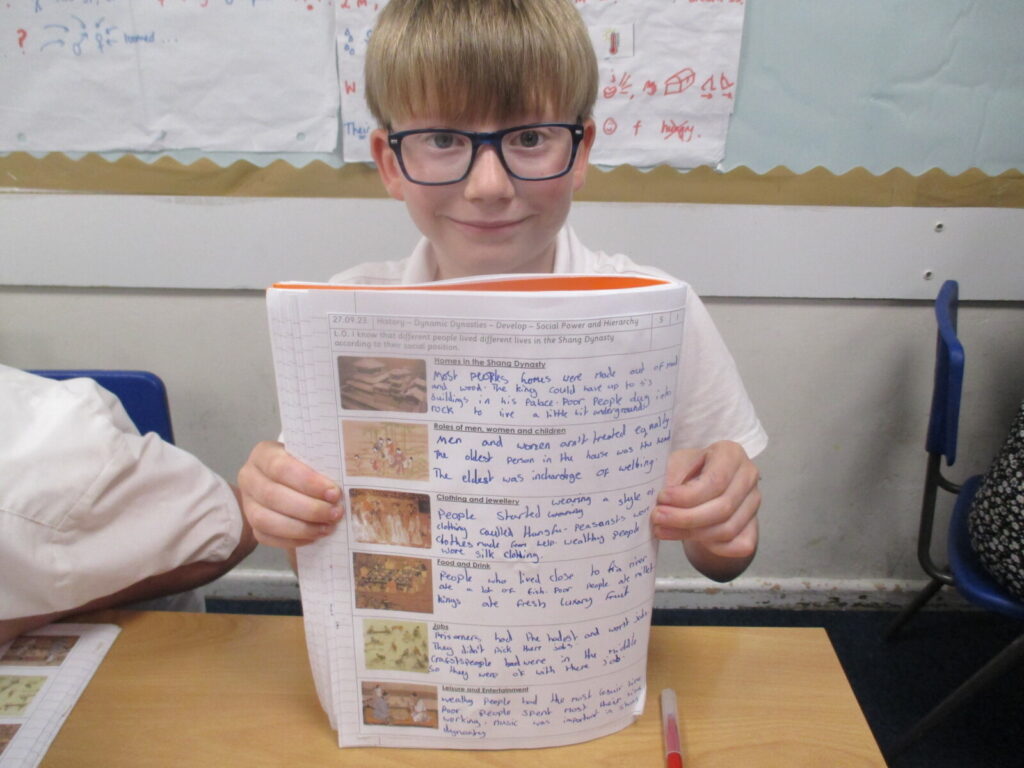 ? homed...
W
Their
f hungry.
27.09.23 History – Dynamic Dynasties – Develop – Social Power and Hierarchy S I
L.O. I know that different people lived different lives in the Shang Dynasty
according to their social position.
Homes in the Shang Dynasty
Most peoples homes were made out of mud
and wood. The king could have up to six
buildings in his palace. Poor people dug into
rock to live a little bit underground.
Roles of men, women and children
Men and women aren't treated equally
The oldest person in the house was the head
The eldest was incharge of
Clothing and jewellery
wearing a style of
People started
clothing caulled Hangfu. Peasansts were
clothes made from help. wealthy people
wore silk clothing.
Food and Drink
People who lived close to river
ate a lot of fish. Poor people ate millet
kings ate fresh luxury fruit
Jobs
Prisoners had the hadest and worst jobs.
They didn't pick there jobs.
Craftspeople were in the middle
so they were ok with there job.
Leisure and Entertainment
wealthy people had the most
Poor people spent most there time
working. music was important a shang
dynasty